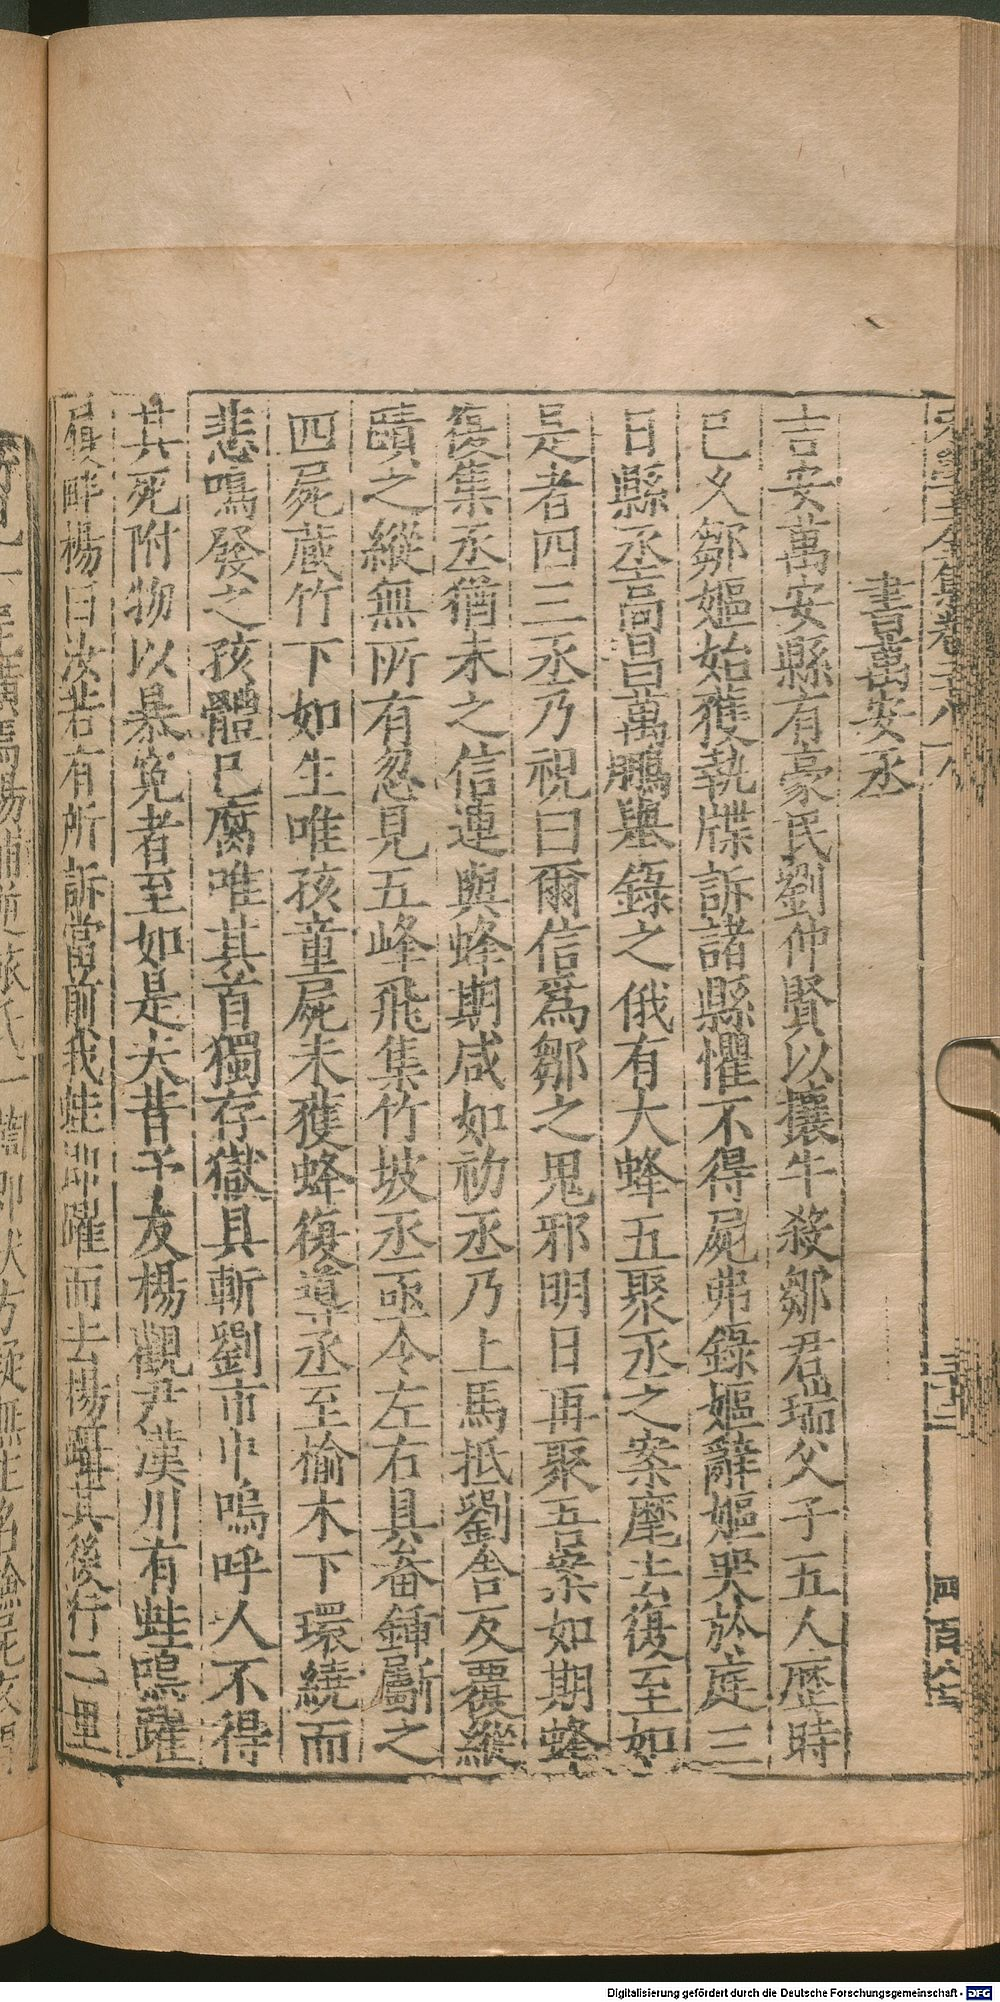 宋學士全集卷
三十二
四百八十
書萬安丞
吉安萬安縣有豪民劉仲賢以攘牛殺鄒君瑞父子五人歷時
已久鄒嫗始獲執牒訴諸縣懼不得屍弗錄嫗辭嫗哭於庭三
日縣丞高昌萬鵬舉錄之俄有大蜂五聚丞之案麾去復至如
是者四三丞乃祝曰爾信爲鄒之鬼邪明日再聚吾案如期蜂
復集丞猶未之信連與蜂期咸如初丞乃上馬抵劉舍反覆縱
蹟之縱無所有忽見五峰飛集竹坡丞亟令左右具畚鍤斸之
四屍藏竹下如生唯孩童屍未獲蜂復導丞至榆木下環繞而
悲鳴發之孩體已腐唯其首獨存獄具斬劉市中嗚呼人不得
其死附物以暴冤者至如是夫昔予友楊觀尹漢川有蛙鳴躍
屐畔楊曰汝若有所訴當前我蛙即躍而去楊躡其後行二里